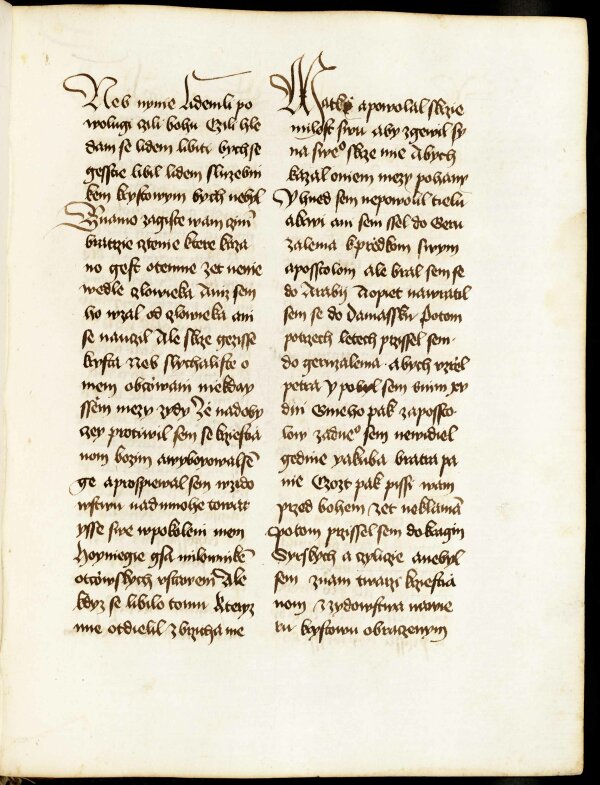 Neb nynie lidemli po
wolugi czili bohu Czili hle
dam se lidem libiti bychse
gesstie libil lidem sluzebni
kem krystowym bych nebyl
Znamo zagiste wam czinī
bratrzie cztenie ktere kaza
no gest otemne zet nenie
wedle czlowieka Aniz sem
ho wzal od czlowieka ani
se nauczil Ale skrze gezisse
krysta Neb slychaliste o
mem obcowani niekday
ssiem mezy zydy Ze nadoby
czey protiwil sem se krziestia
nom bozim awybogowalsē
ge aprospiewal sem wzido
wstwu nadmnohe towar
ysse swe wpokoleni mem
Hoyniegie gsa milownikē
otcowskych vstawenī Ale
kdyz se libilo tomu Kteryz
mie otdielil zbrzicha me
Matky apowolal skrzie
milost swu aby zgewil sy
na sweº skrze mie Abych
kazal oniem mezy pohany
Y hned sem nepowolil tielu
akrwi ani sem ssel do Geru
zalema kpredkom swym
aposstolom ale bral sem se
do Arabij Aopiet nawratil
sem se do Damassku Potom
potrzech letech prissel sem
do geruzalema abych vzrzel
petra Y pobyl sem snim xv
dni Gineho pak zapossto
low zadneº sem newidiel
gedine yakuba bratra pa
nie Czozt pak pissi wam
przed bohem zet neklamā
Potom prissel sem do kragin
Syrskych a czylicie anebyl
sem znam twarzi krziestia
nom zzydowstwa nawie
ru krystowu obraczenym